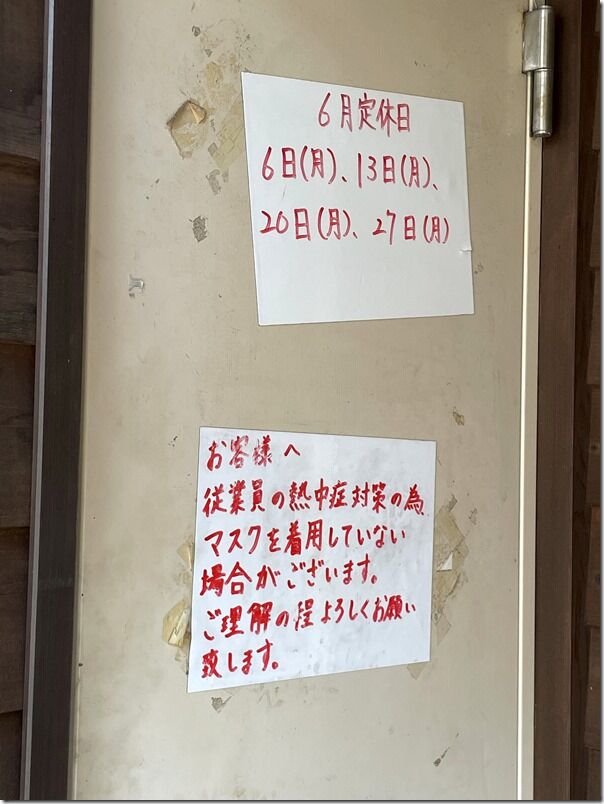 6月定休日
6日(月)、13日(月)、
20日(月)、27日(月)
お客様へ
従業員の熱中症対策の為
マスクを着用していない
場合がございます。
ご理解の程よろしくお願い
致します。